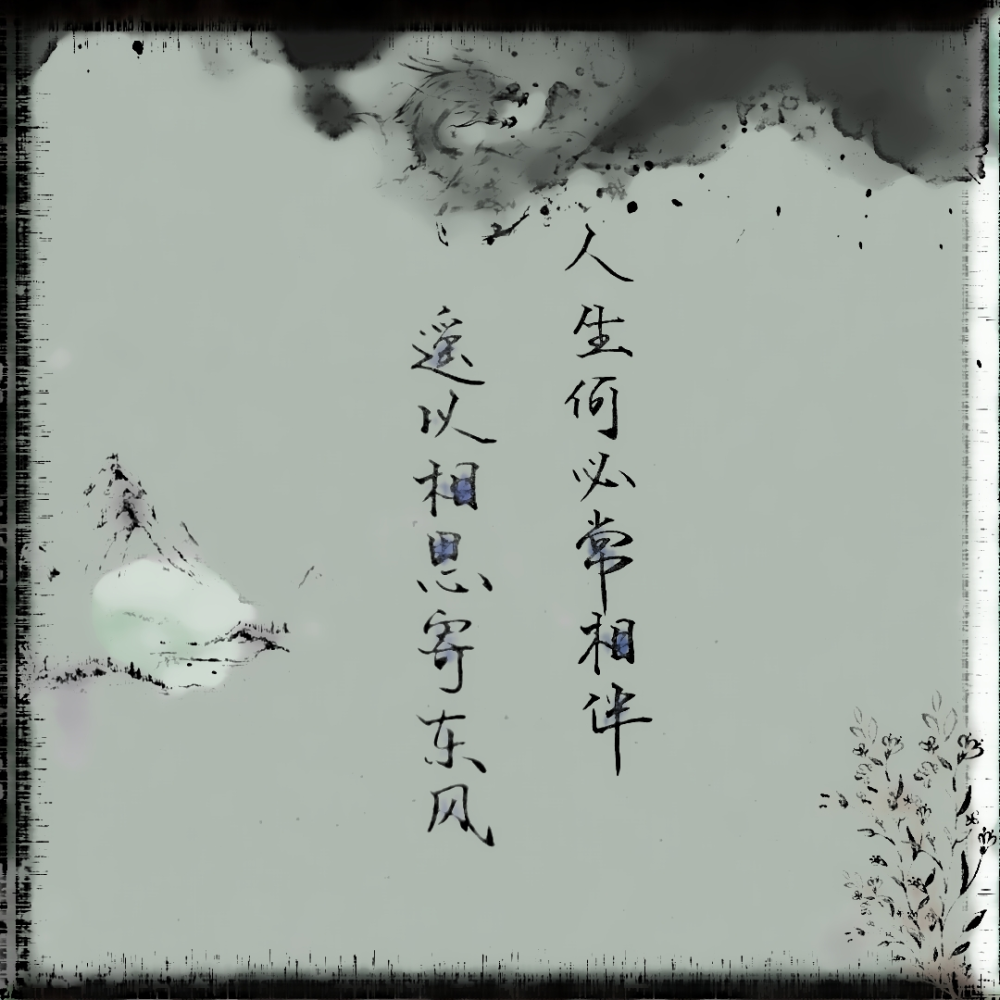 人生何必常相伴
遥以相思寄东风